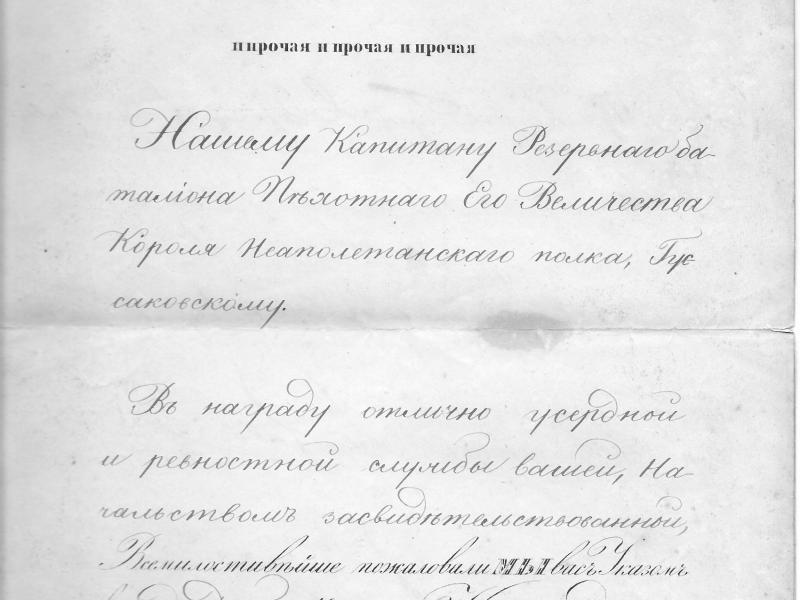 и прочая и прочая и прочая
Нашему Капитану Резервнаго ба-
таліона Пѣхотнаго Его Величества
Короля Неаполетанскаго полка, Гус-
саковскому.
Въ награду отлично усердной
и ревностной службы вашей, На-
чальствомъ засвидѣтельствованной,
Всемилостивѣйше пожаловали МЫ васъ Указомъ